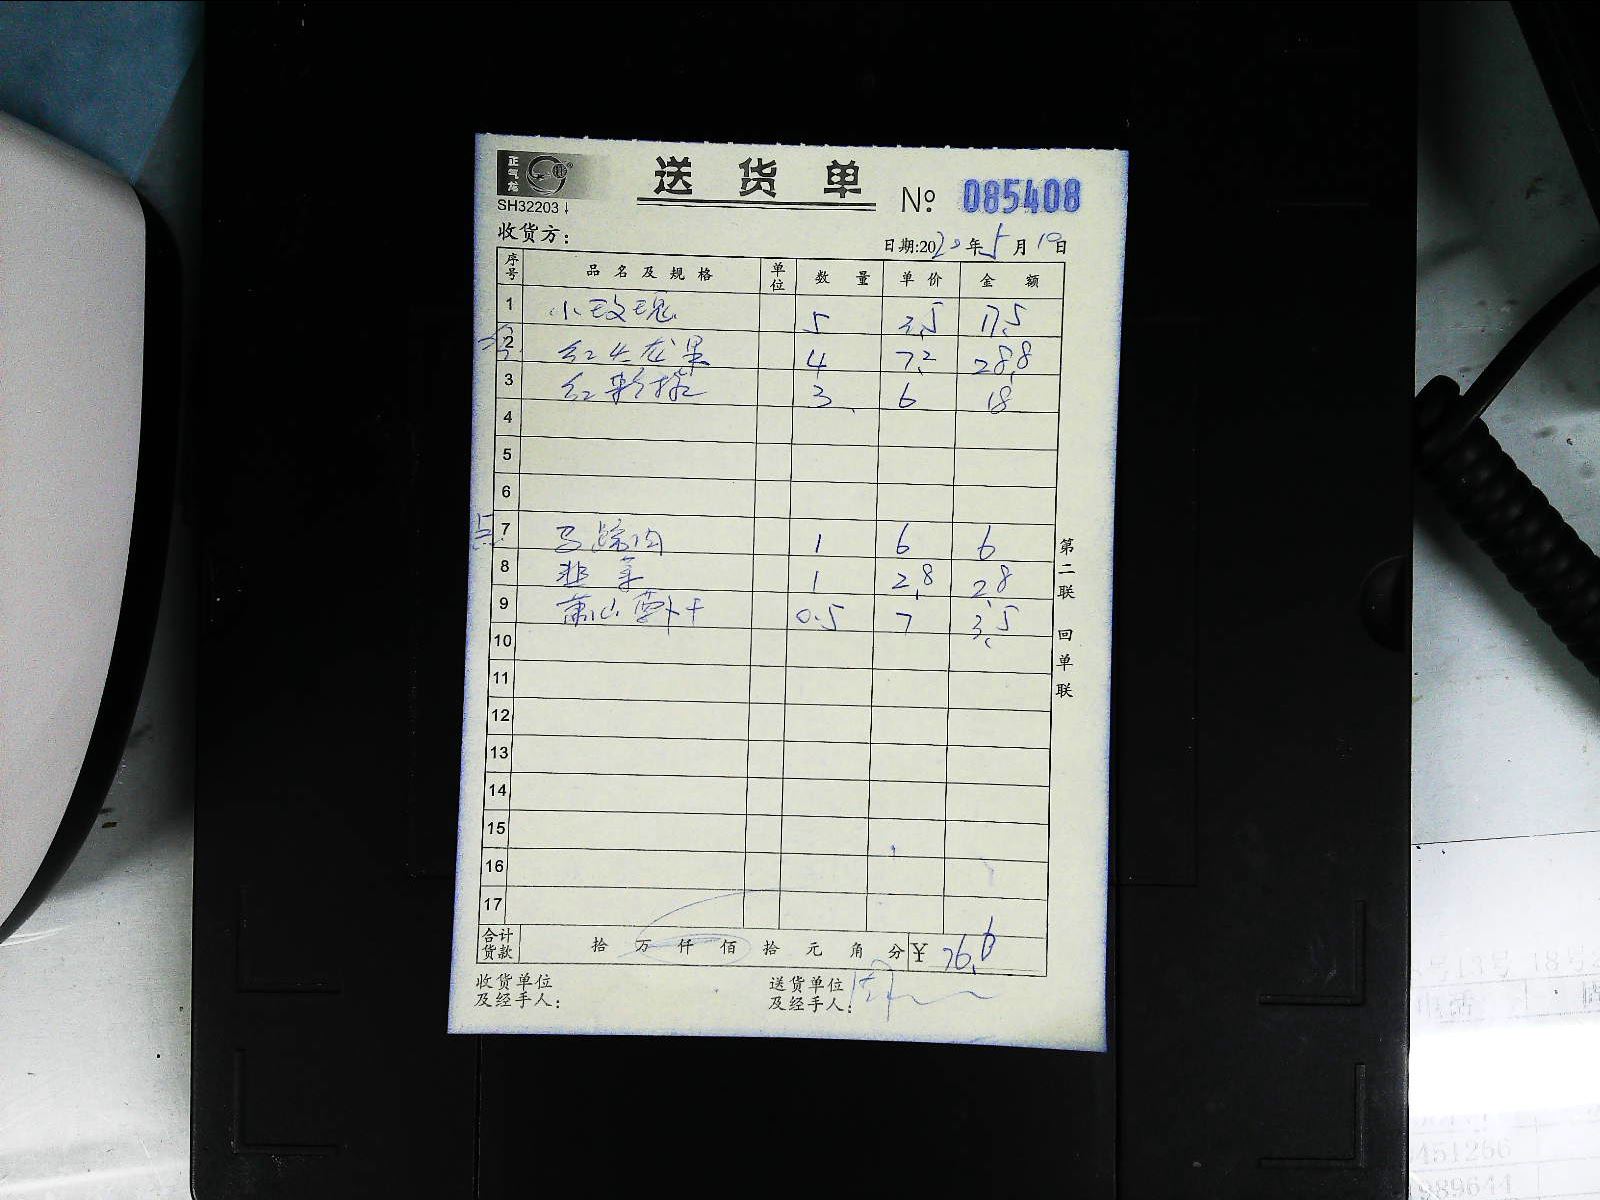 正气龙
送货单
№ 085408
SH32203↓
收货方:
日期:2020年5月19日
序号 品名及规格 单位 数量 单价 金额
1 小玫瑰 5 3.5 17.5
2 红火龙果 4 7.2 28.8
3 红彩椒 3 6 18
4
5
6
点 7 马蹄肉 1 6 6
8 韭菜 1 2.8 2.8
9 萧山萝卜干 0.5 7 3.5
10
11
12
13
14
15
16
17
合计货款 拾万仟佰拾元角分 ¥ 76.6
收货单位及经手人:
送货单位及经手人:
第二联 回单联
451266
989644